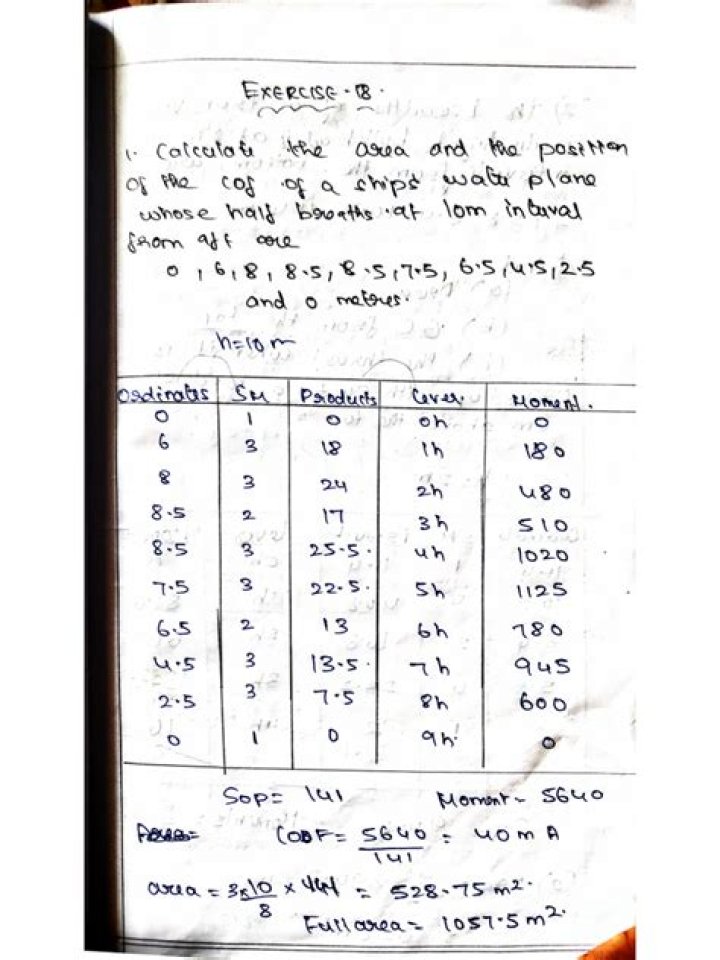 EXERCISE - 18.
1. Calculate the area and the position
of the cof of a ship's water plane
whose half breaths at 10m interval
from aft are
0, 6, 8, 8.5, 8.5, 7.5, 6.5, 4.5, 2.5
and 0 metres.
h=10m
Ordinates SM Products Lever. Moment.
0 1 0 0h 0
6 3 18 1h 180
8 3 24 2h 480
8.5 2 17 3h 510
8.5 3 25.5. 4h 1020
7.5 3 22.5. 5h 1125
6.5 2 13 6h 780
4.5 3 13.5. 7h 945
2.5 3 7.5 8h 600
0 1 0 9h. 0
SOP = 141 Moment - 5640
COF = 5640/141 = 40m A
area = 3x10/8 x 141 = 528.75 m².
Full area = 1057.5 m².